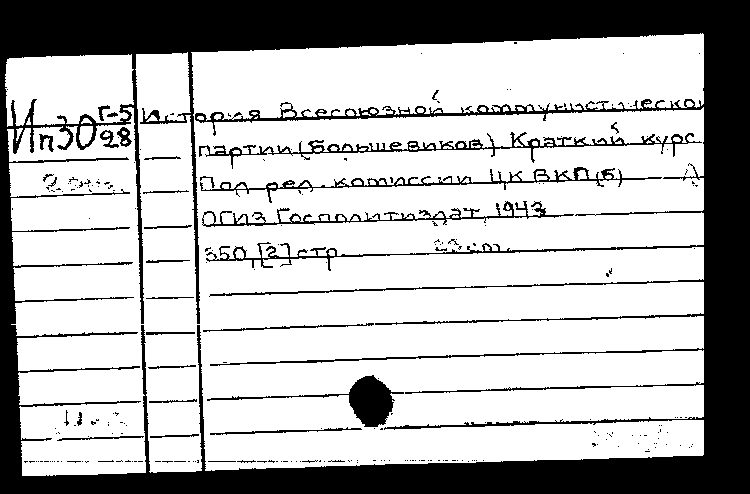 Ип30 Г-5
28
История Всесоюзной коммунистической
партии (большевиков) Краткий курс
2 экз. Под ред. комиссии ЦК ВКП(б)
ОГИЗ Госполитиздат, 1943
350, [2] стр. 23 cm.